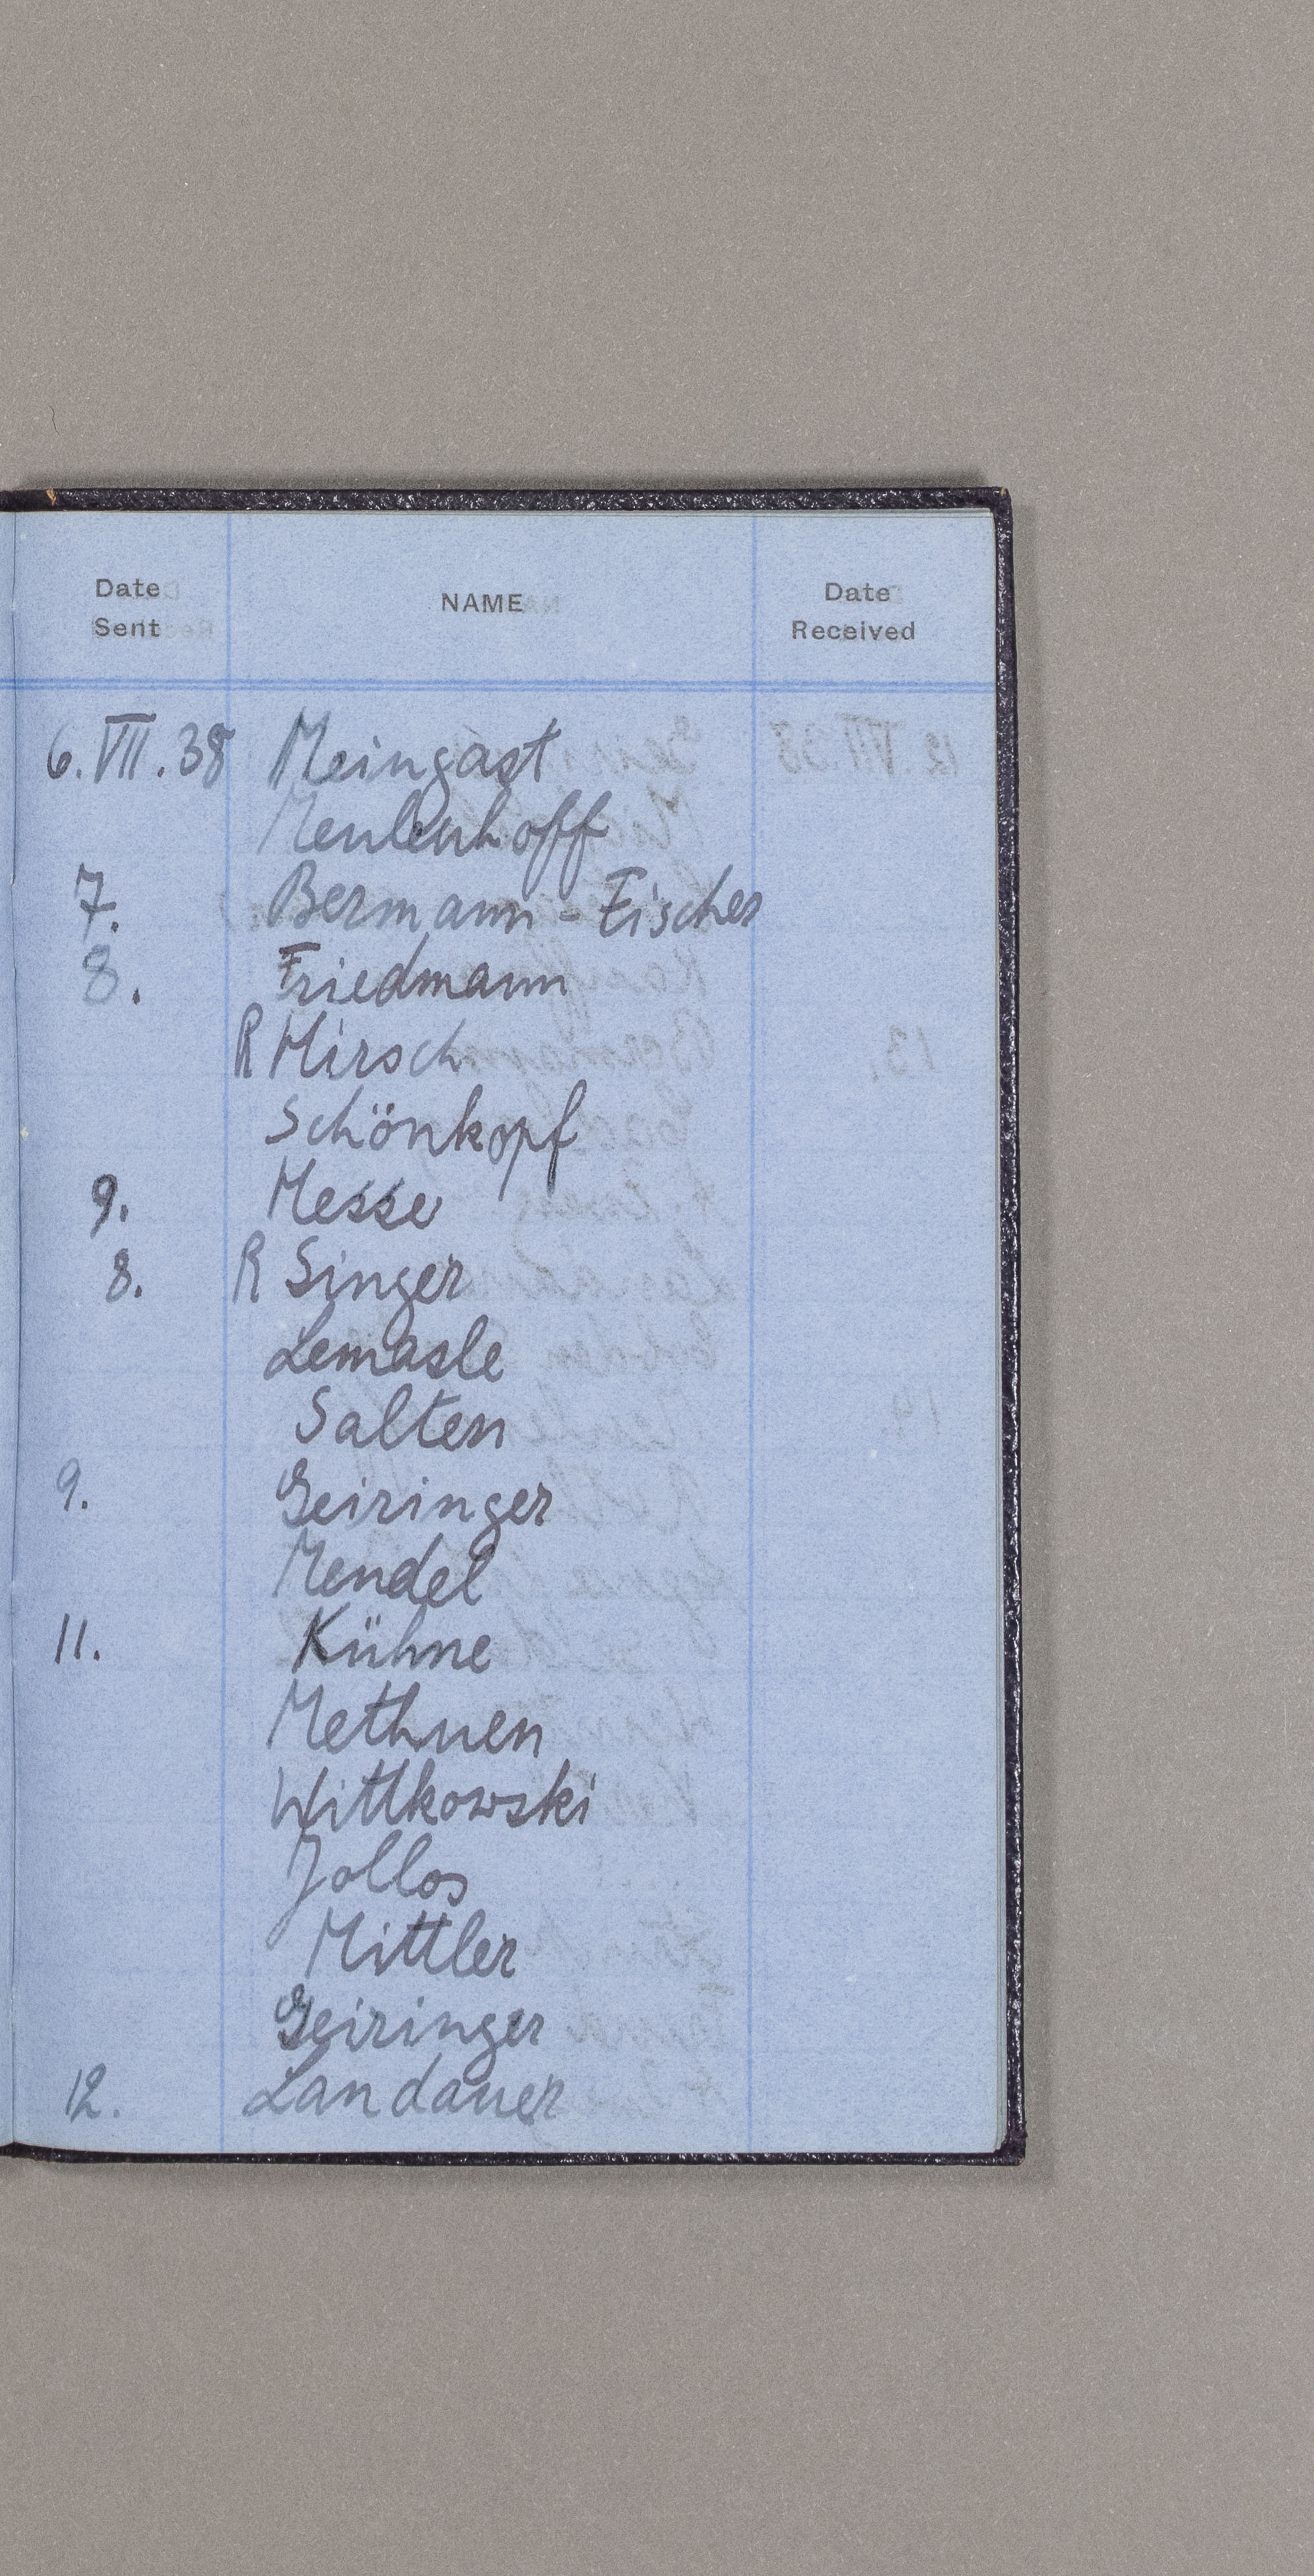 Date Sent NAME Date Received
6.VII.38 Meingast
Meulenhoff
7. Bermann-Fischer
8. Friedmann
R Hirsch
Schönkopf
9. Hesse
8. R Singer
Lemasle
Salten
9. Geiringer
Mendel
11. Kühne
Methuen
Wittkowski
Jollos
Mittler
Geiringer
12. Landauer